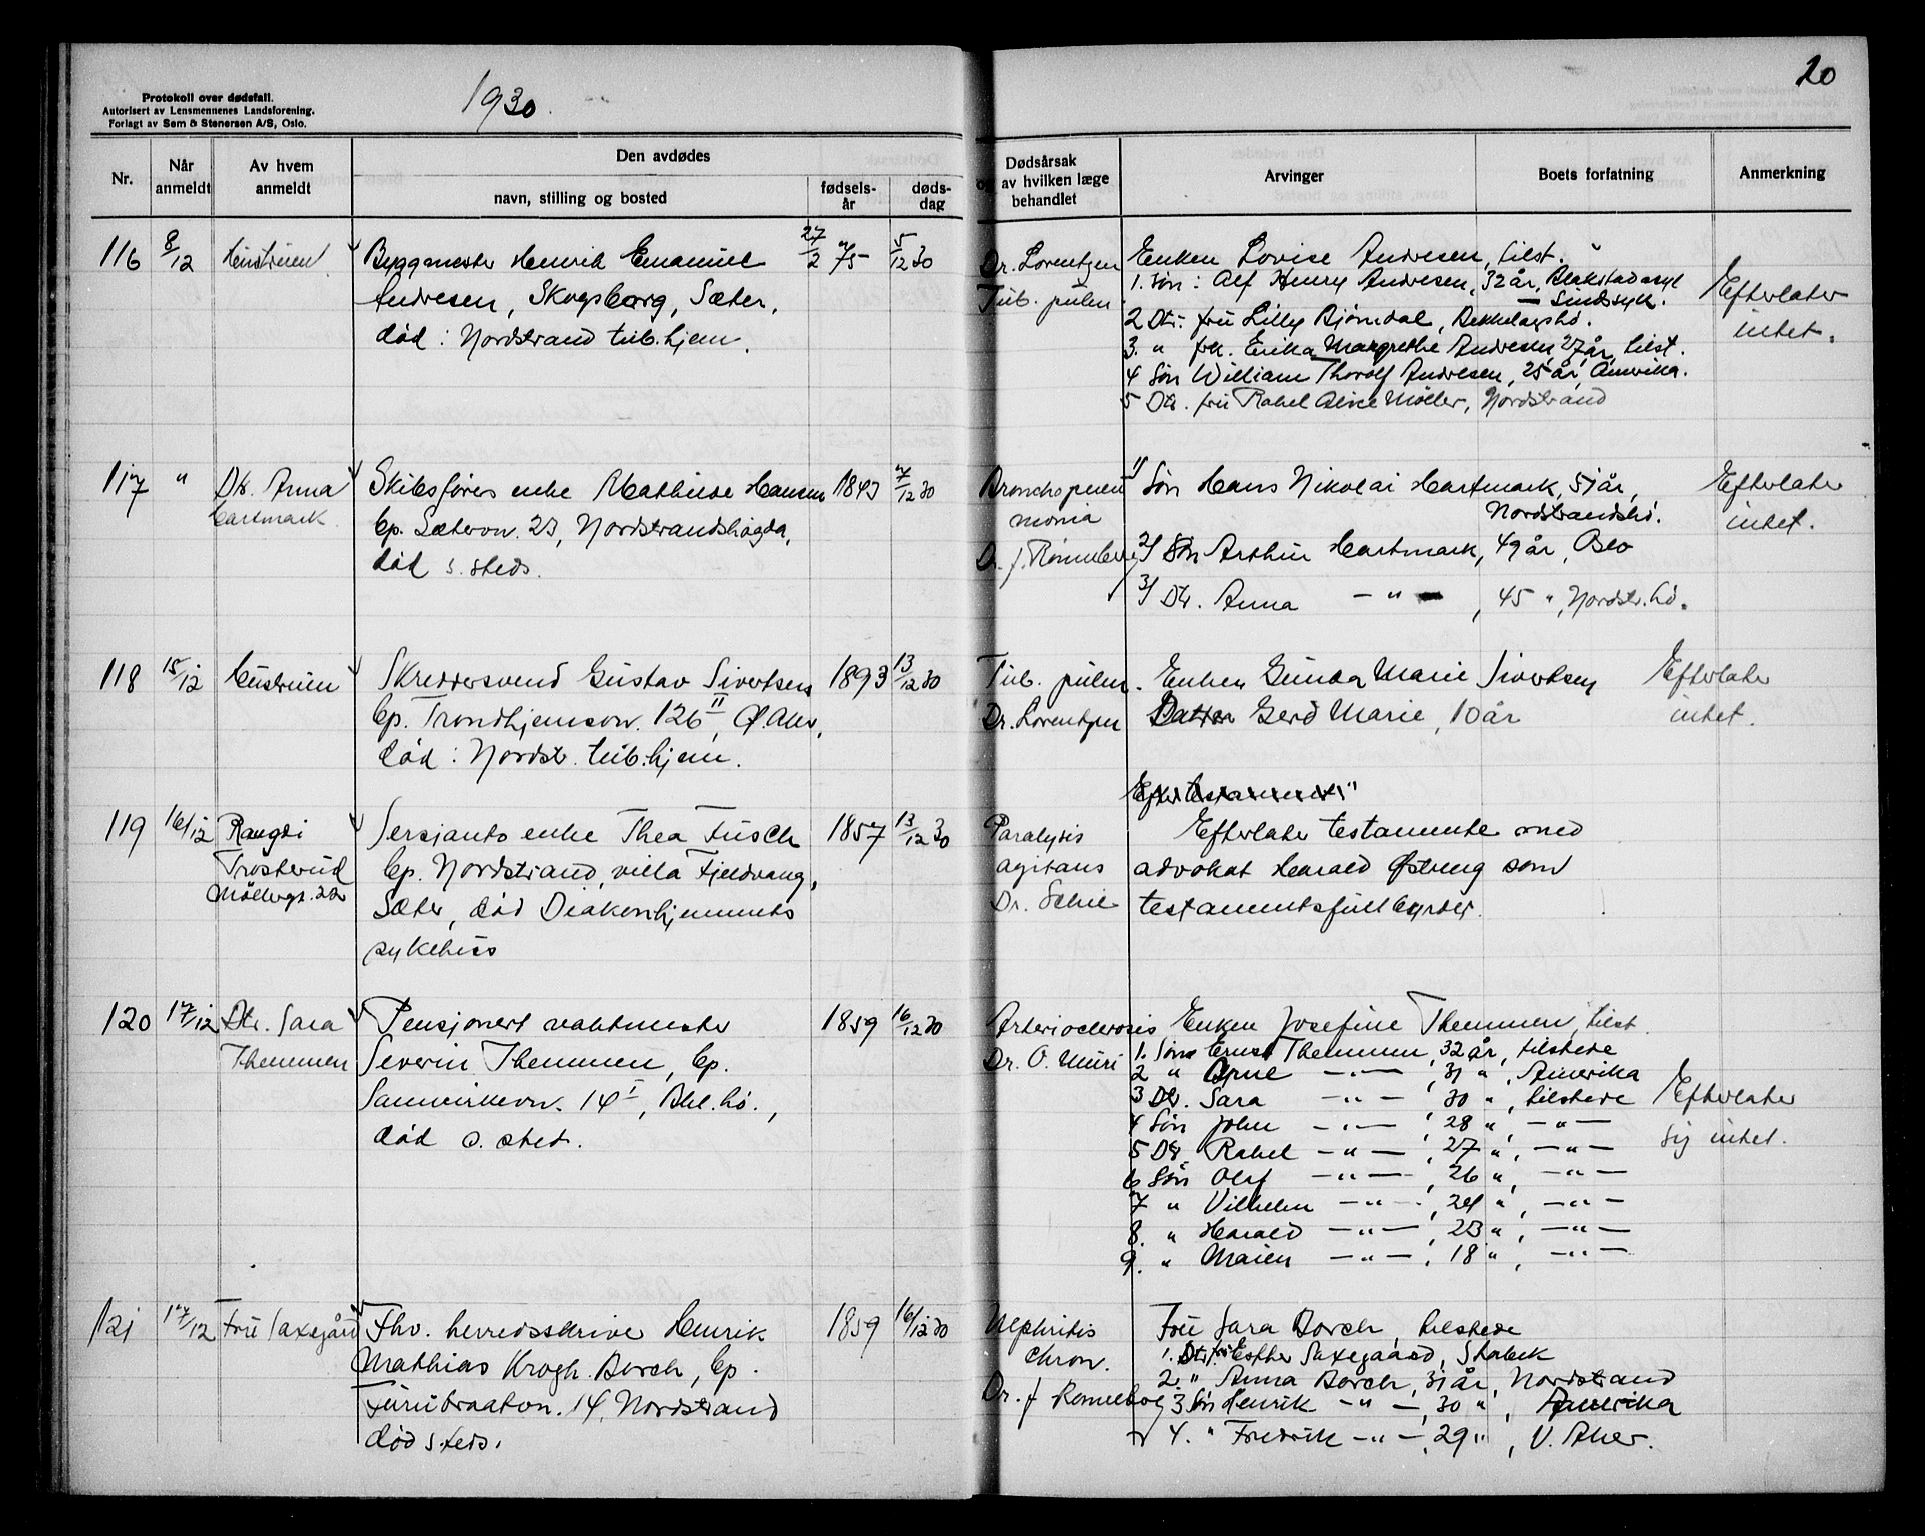 Protokoll over dødsfall.
Autorisert av Lensmennenes Landsforening.
Forlagt av Sem & Stenersen A/S, Oslo.
1930.
20
Nr.
Når anmeldt
Av hvem anmeldt
Den avdødes
navn, stilling og bosted
fødsels-år
døds-dag
Dødsårsak og av hvilken læge behandlet
Arvinger
Boets forfatning
Anmerkning
116 8/12 Hustruen Byggmester Henrik Emanuel 27/2 75 5/12 30
Andresen, Skogsborg, Sæter,
død: Nordstrand tub.hjem.
Dr. Lorentzen
Tub. pulm
Enken Lovise Andresen, tilst.
1. Søn: Alf Henry Andresen, 32 år, Blakstad asyl
— Sindssyk.
2 Dtr. fru Lilly Bjørndal, Bekkelagshø.
3. " frk. Erika Margrethe Andresen, 27 år, tilst.
4 Søn William Thorolf Andresen, 25 år, Amerika.
5 Dtr. fru Rakel Alice Møller, Nordstrand
Efterlater
intet.
117 " Dtr. Anna Hartmark Skibsførers enke Mathilde Hansen 1843 7/12 30
bp. Sætervn. 23, Nordstrandshøgda,
død s. steds.
Bronchopneu
monia
Dr. J. Rønneberg
1/ Søn Hans Nikolai Hartmark, 51 år,
Nordstrandshø.
2/ Søn Arthur Hartmark, 49 år, Oslo
3/ Dtr. Anna — " — , 45 ", Nordstr.hø.
Efterlater
intet.
118 15/12 Hustruen Skreddersvend Gustav Sivertsen 1893 13/12 30
bp. Trondhjemsvn. 126 II, Ø. Aker,
død: Nordstr. tub.hjem.
Tub. pulm.
Dr. Lorentzen
Enken Gunda Marie Sivertsen
Datter Gerd Marie, 10 år
Efterlater
intet.
119 16/12 Rangdi
Trosterud
Møllergt. 22
Sersjants enke Thea Fusch 1857 13/12 30
bp. Nordstrand, villa Fjeldvang,
Sæter, død Diakonhjemmets
sykehus
Paralysis
agitans
Dr. Schie
Efterlater testamente med
advokat Harald Østreng som
testamentsfullbyrder.
120 17/12 Dtr. Sara
Themmen
Pensjonert vaktmester 1859 16/12 30
Severin Themmen, bp.
Samvirkevn. 14 I, Bkl.hø.,
død s. sted.
Arteriosclerosis
Dr. O. Muri
Enken Josefine Themmen, tilst.
1. Søn Ernst Themmen, 32 år, tilstede
2 " Arne — " — , 31 ", Amerika
3 Dtr. Sara — " — , 30 ", tilstede
4 Søn John — " — , 28 " — " —
5 Dtr Rakel — " — , 27 ", — " —
6 Søn Olaf — " — , 26 ", — " —
7 " Vilhelm — " — , 24 ", — " —
8. " Harald — " — , 23 ", — " —
9. " — " — , 18 ", — " —
Efterlater
sig intet.
121 17/12 Fru Saxegård Fhv. herredsskriver Henrik 1859 16/12 30
Mathias Krogh Borch, bp.
Furubraatvn. 14, Nordstrand
død steds.
Nephritis
chron.
Dr. J
Fru Sara Borch, tilstede
1. Dtr. fru Esther Saxegaard, Stabek
2. " Anna Borch, 31 år, Nordstrand
3 Søn Henrik — " — , 30 ", Amerika
4. " Fredrik — " — , 29 ", V. Aker.